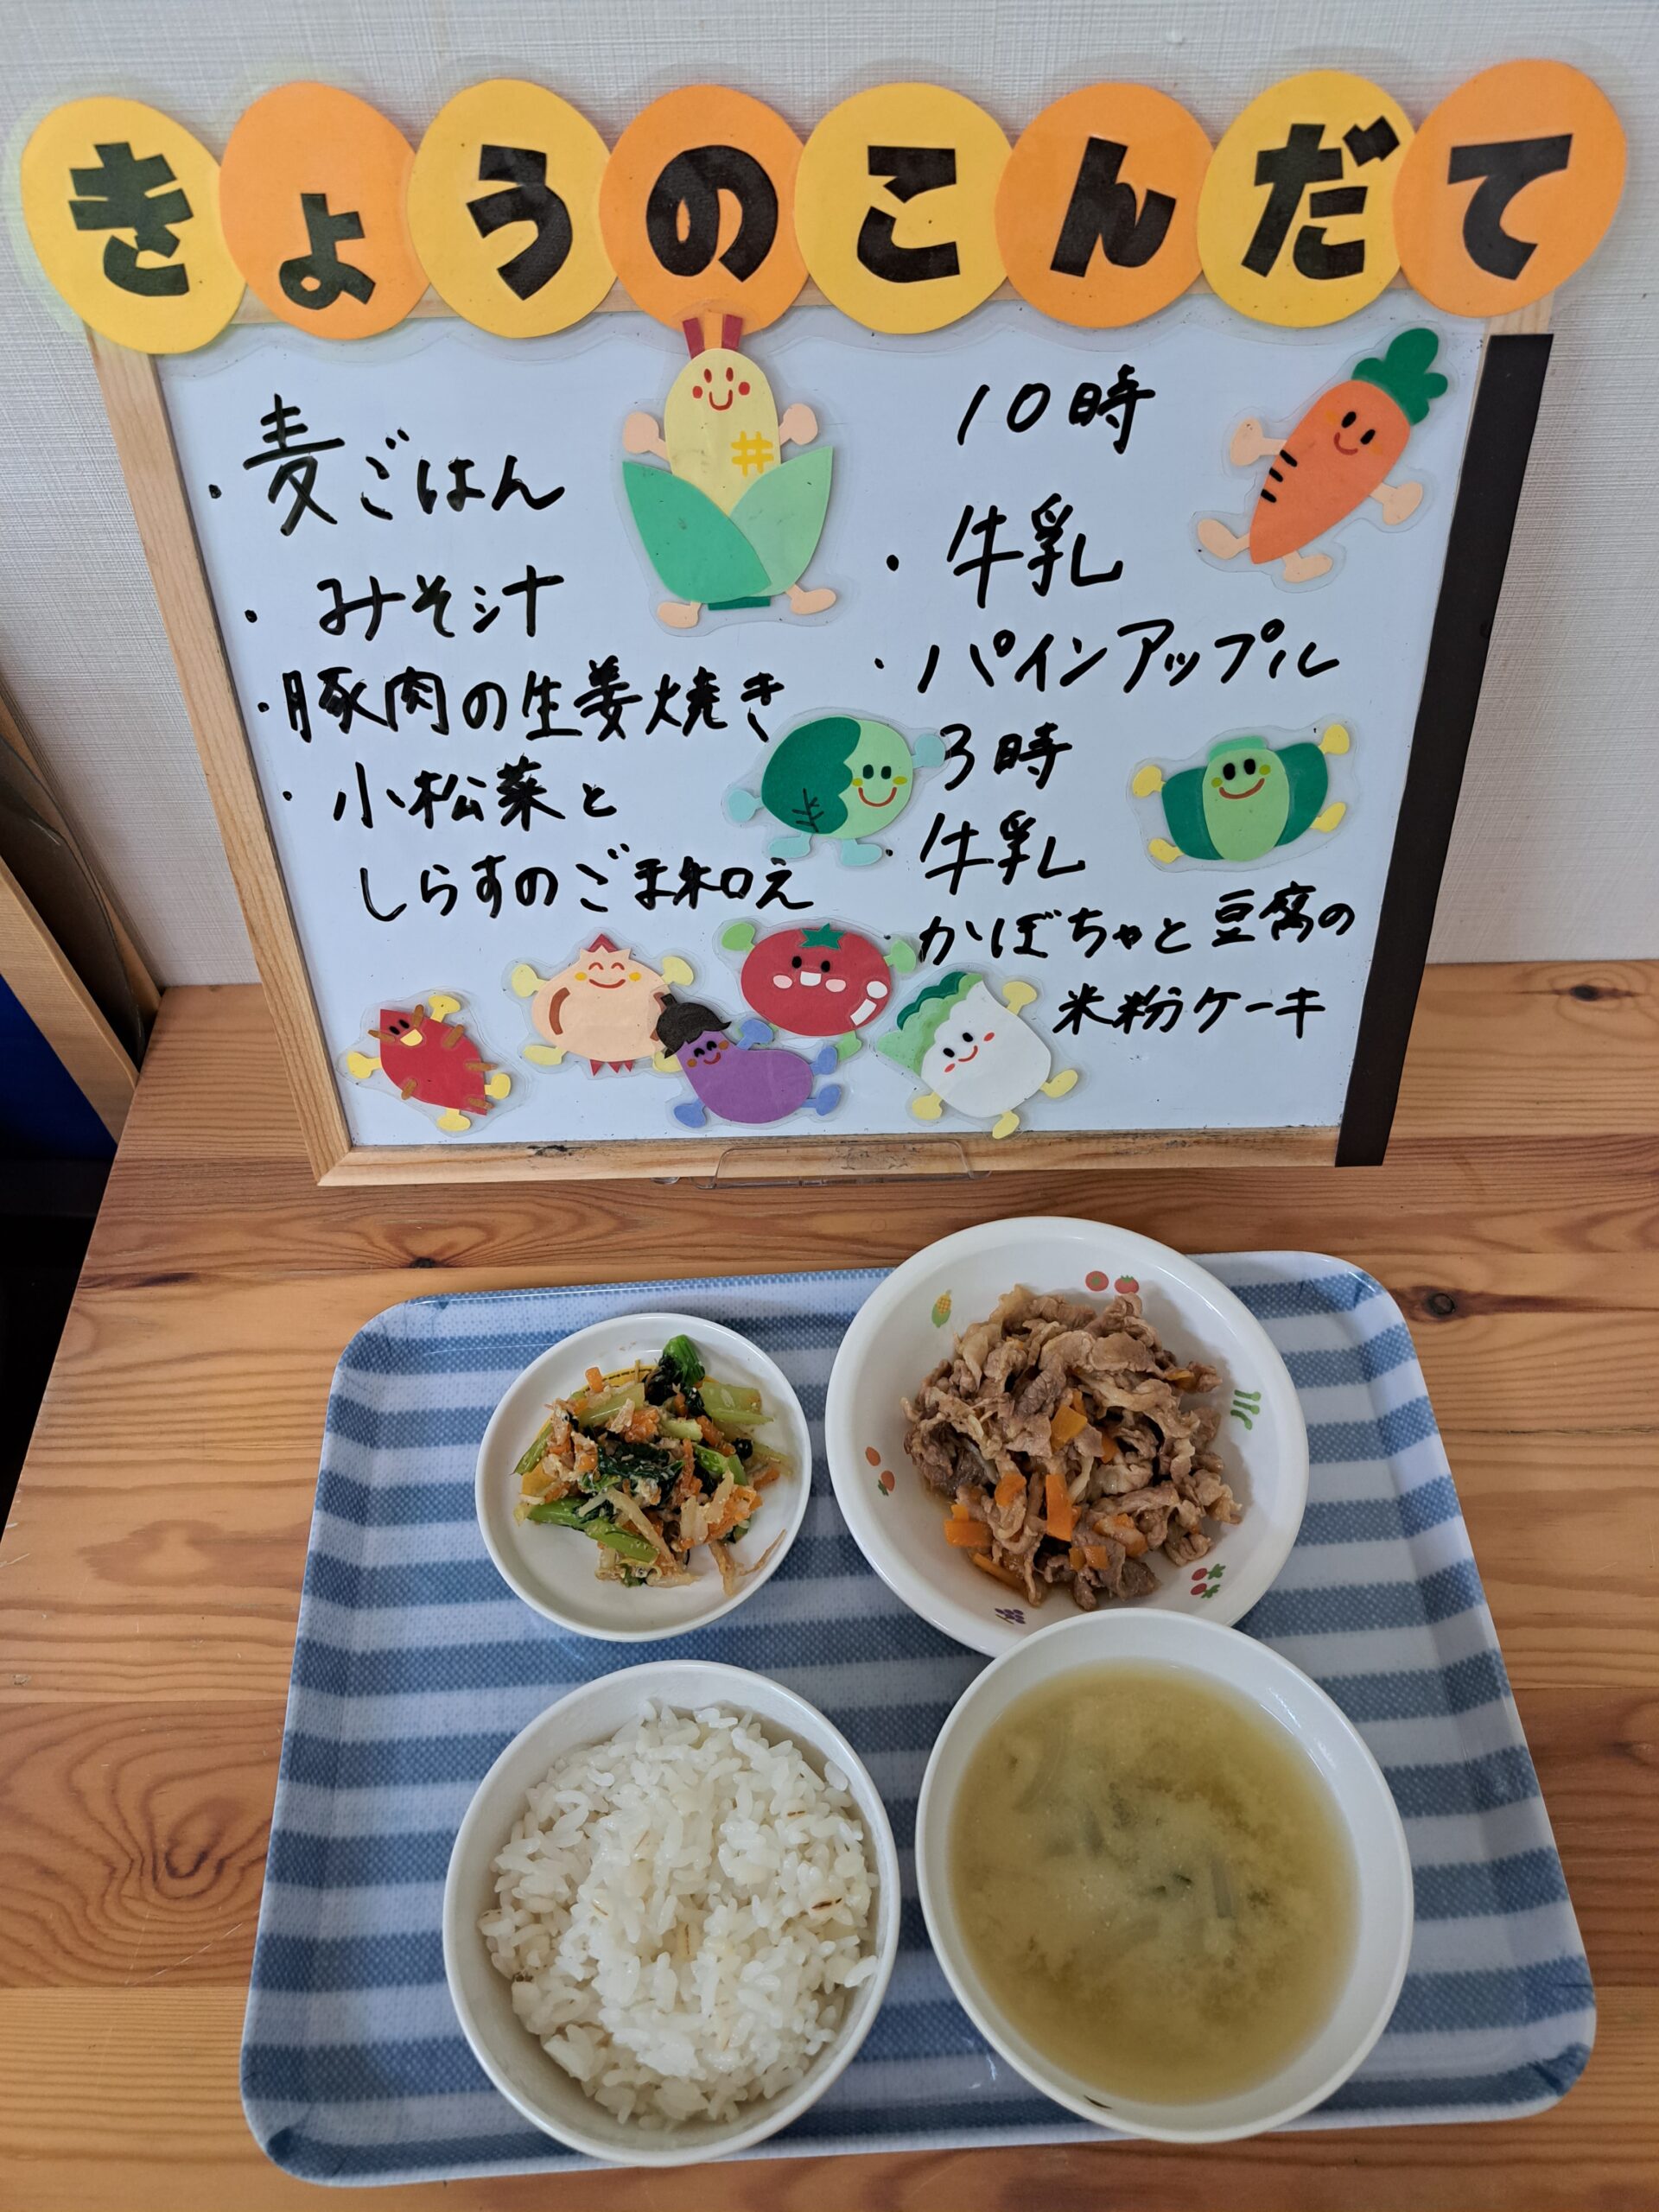 きょうのこんだて
・麦ごはん
・みそ汁
・豚肉の生姜焼き
・小松菜と
しらすのごま和え
10時
・牛乳
・パインアップル
3時
・牛乳
・かぼちゃと豆腐の
米粉ケーキ